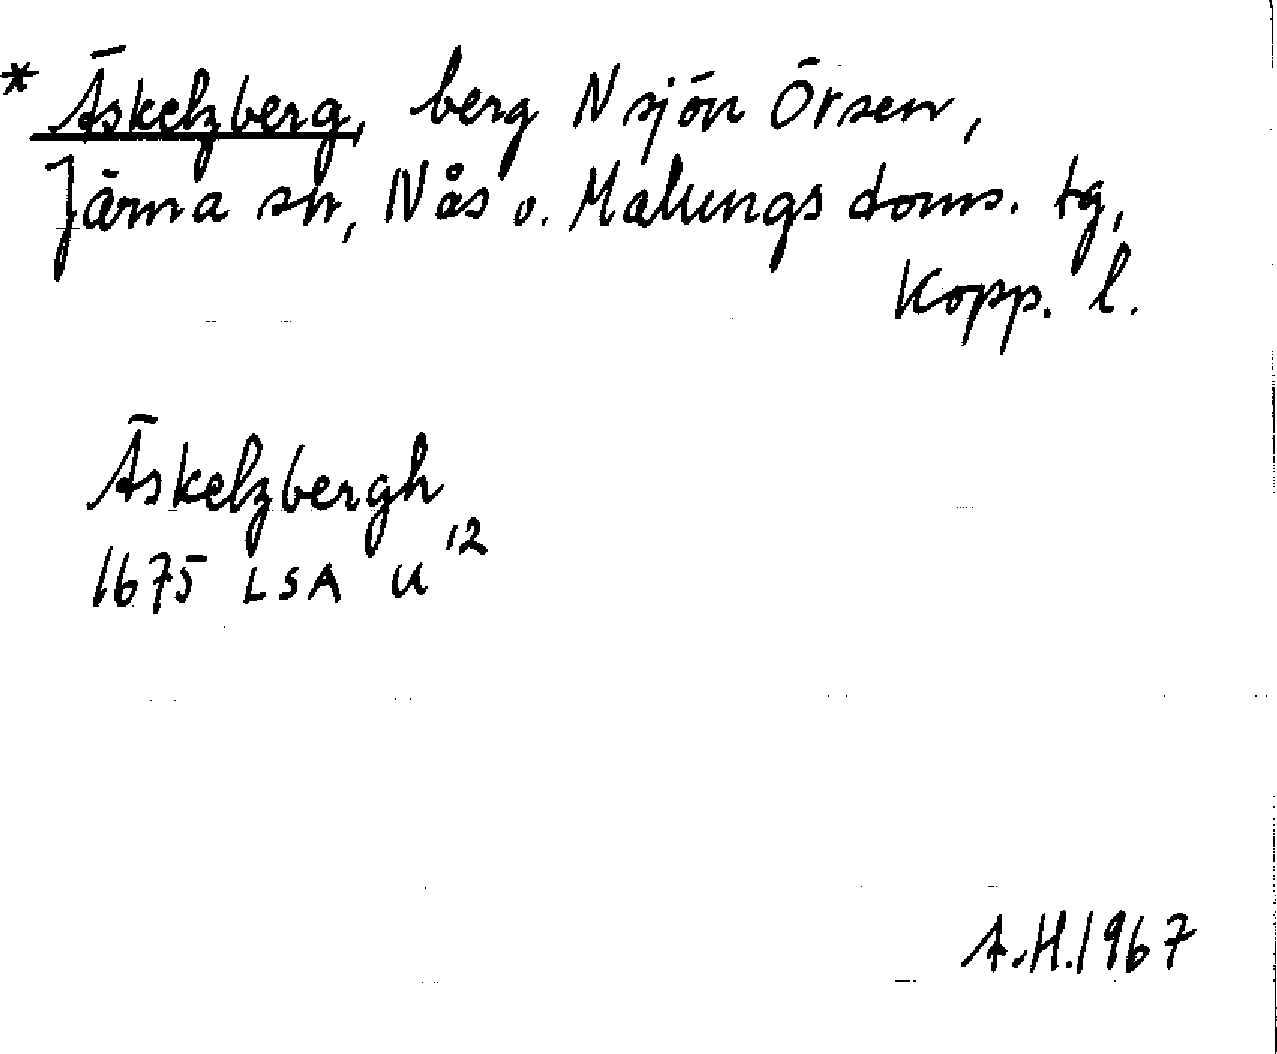 * Äskelzberg, berg N sjön Örsen,
Järna sn, Nås o. Malungs doms. tg,
Kopp. l.
Äskelzbergh
1675 LSA U 12
A.H. 1967